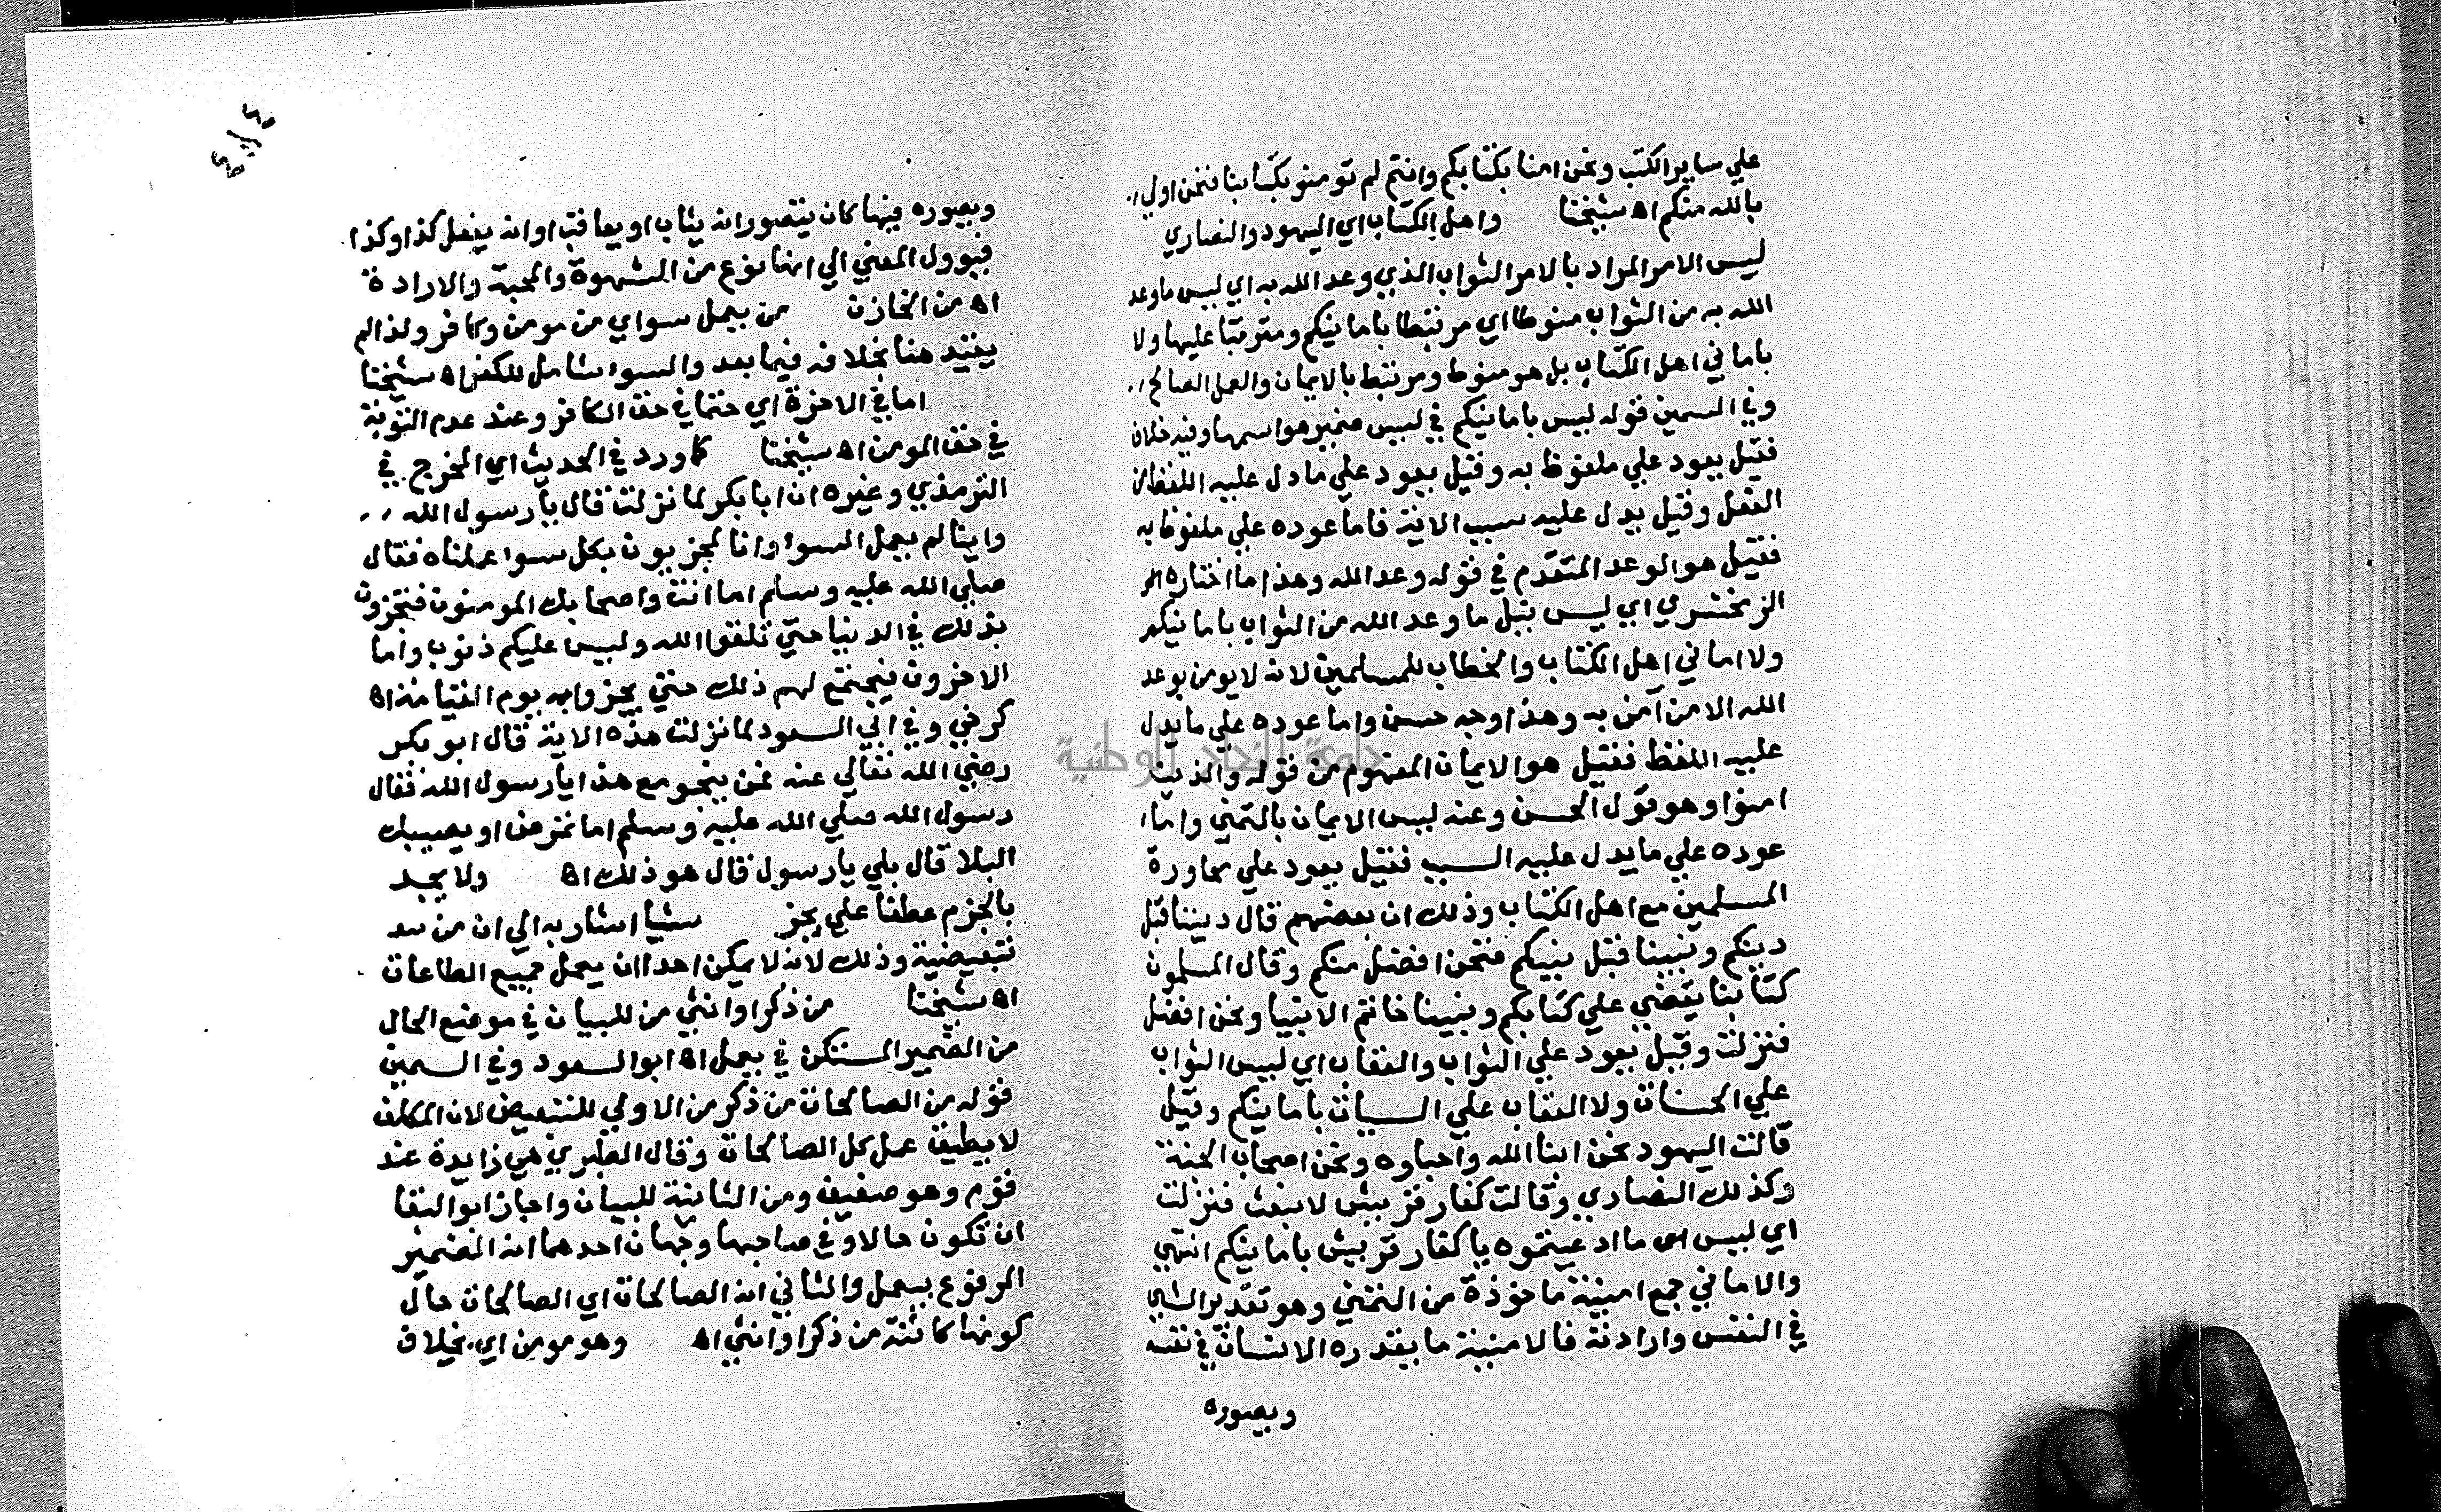 علي ساير الكتب ونحن امنا بكتابكم وانتم لم تومنو بكتابنا فنحن اولي
بالله منكم اه شيخنا واهل الكتاب اي اليهود والنصاري
ليس الامر المراد بالامر الثواب الذي وعد الله به اي ليس ما وعد
الله به من الثواب منوطا اي مرتبطا بامانيكم ومترتبا عليها ولا
باماني اهل الكتاب بل هو منوط ومرتبط بالايمان والعمل الصالح
وفي السمين قوله ليس بامانيكم في ليس ضمير هو اسمها وفيه خلاف
فقيل يعود علي ملفوظ به وقيل يعود علي ما دل عليه اللفظ من
الفعل وقيل يدل عليه سبب الاية فاما عوده علي ملفوظ به
فقيل هو الوعد المتقدم في قوله وعد الله وهذا ما اختاره
الزمخشري اي ليس بنيل ما وعد الله من الثواب بامانيكم
ولا اماني اهل الكتاب والخطاب للمسلمين لانه لا يومن بوعد
الله الا من آمن به وهذا وجه حسن واما عوده علي ما يدل
عليه اللفظ فقيل هو الايمان المفهوم من قوله والذين
امنوا وهو قول الحسن وعنه ليس الايمان بالتمني واما
عوده علي ما يدل عليه السبب فقيل يعود علي محاورة
المسلمين مع اهل الكتاب وذلك ان بعضهم قال ديننا قبل
دينكم ونبينا قبل نبيكم فنحن افضل منكم وقال المسلمون
كتابنا يقضي علي كتابكم ونبينا خاتم الانبيا ونحن افضل
فنزلت وقيل يعود علي الثواب والعقاب اي ليس الثواب
علي الحسنات ولا العقاب علي السيات بامانيكم وقيل
قالت اليهود نحن ابنا الله واحباوه ونحن اصحاب الجنة
وكذلك النصاري وقالت كفار قريش لا نبعث فنزلت
اي ليس ما ادعيتموه يا كفار قريش بامانيكم انتهي
والاماني جمع امنية ماخوذة من التمني وهو تقدير الشي
في النفس وارادته فالامنية ما يقدره الانسان في نفسه
ويصوره
جامعة النجاح الوطنية
ويصوره فيها كان يتصور انه يثاب او يعاقب او انه يفعل كذا وكذا
فيوول المعني الي انها نوع من الشهوة والمحبة والارادة
اه من الخازن من يعمل سوا اي من مومن وكافر ولذا لم
يقيد هنا بخلافه فيما بعد والسوء شامل للكفر اه شيخنا
اما في الاخرة اي حتما في حق الكافر وعند عدم التوبة
في حق المومن اه شيخنا كما ورد في الحديث اي المخرج في
الترمذي وغيره ان ابا بكر لما نزلت قال يا رسول الله
واينا لم يعمل السوا وانا لمجزيون بكل سوا عملناه فقال
صلي الله عليه وسلم اما انت واصحابك المومنون فتجزون
بذلك في الدنيا حتي تلقوا الله وليس عليكم ذنوب واما
الاخرون فيجتمع لهم ذلك حتي يجزوا به يوم القيامة اه
كرخي وفي ابي السعود لما نزلت هذه الاية قال ابو بكر
رضي الله تعالي عنه فمن ينجو مع هذا يا رسول الله فقال
رسول الله صلي الله عليه وسلم اما تمرض او يصيبك
البلا قال بلي يا رسول قال هو ذلك اه ولا يجد
بالجزم عطفا علي يجز شيا اشار به الي ان من
تبعيضية وذلك لانه لا يمكن احدا ان يعمل جميع الطاعات
اه شيخنا من ذكر او انثي من للبيان في موضع الحال
من الضمير المستكن في يعمل اه ابو السعود وفي السمين
قوله من الصالحات من ذكر من الاولي للتبعيض لان المكلف
لا يطيق عمل كل الصالحات وقال الطبري هي زايدة عند
قوم وهو ضعيف ومن الثانية للبيان واجاز ابو البقا
ان تكون حالا وفي صاحبها وجهان احدهما انه الضمير
المرفوع بيعمل والثاني انه الصالحات اي الصالحات حال
كونها كائنة من ذكر او انثي اه وهو مومن اي بخلاف